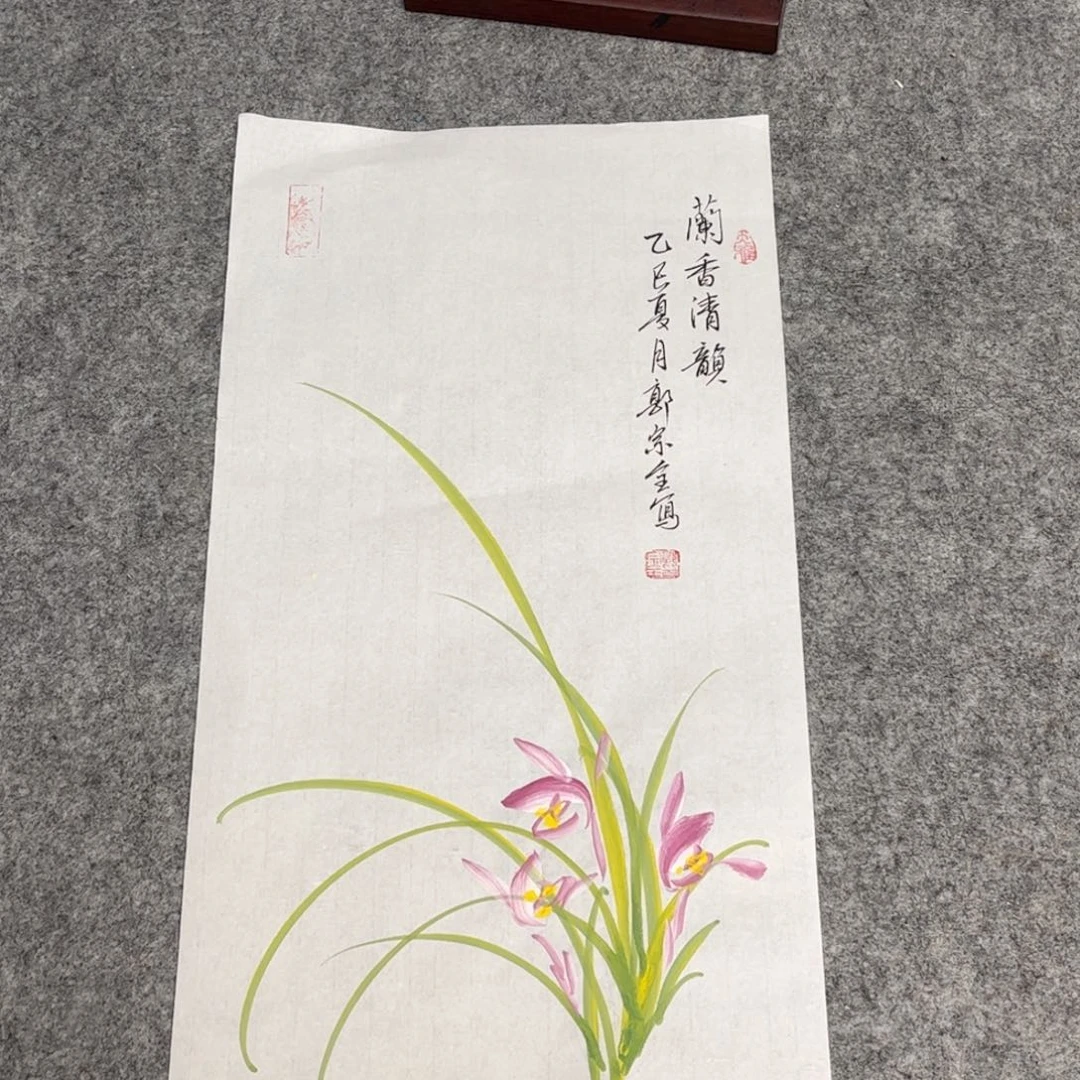 蘭香清韻
乙巳夏月郭宗全寫